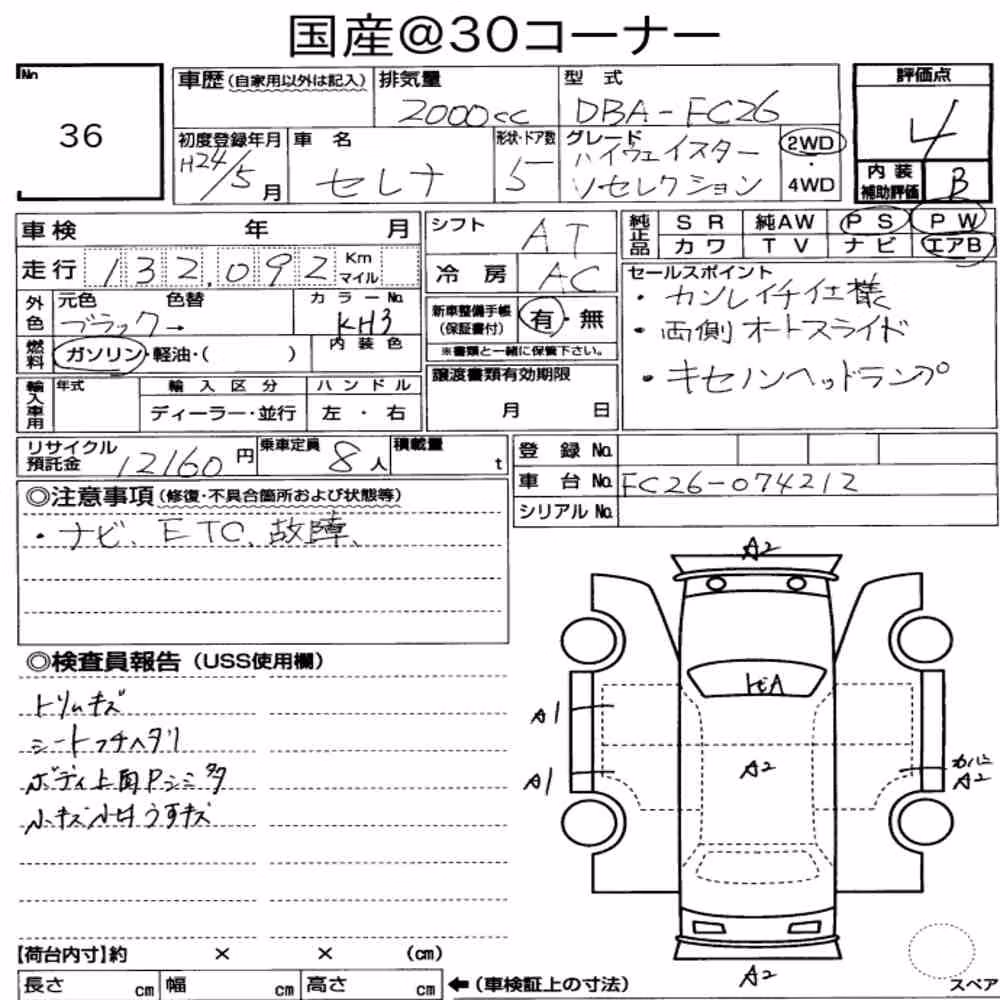 国産@30コーナー
No.
36
車歴(自家用以外は記入)
排気量
2000cc
型式
DBA-FC26
評価点
4
初度登録年月
H24/5月
車名
セレナ
形状・ドア数
5
グレード
ハイウェイスター
Vセレクション
2WD
・
4WD
内装
補助評価
B
車検 年 月
シフト
AT
純正品
SR 純AW PS PW
カワ TV ナビ エアB
走行 132,092 Km
マイル
冷房
AC
セールスポイント
・カンレイチ仕様
・両側オートスライド
・キセノンヘッドランプ
外色
元色 色替
ブラック→
カラーNo.
KH3
新車整備手帳
(保証書付)
有・無
※書類と一緒に保管下さい。
燃料
ガソリン・軽油・( )
内装色
譲渡書類有効期限
月 日
輸入車用
年式
輸入区分
ハンドル
ディーラー・並行
左・右
リサイクル
預託金
12160円
乗車定員
8人
積載量
t
登録No.
車台No. FC26-074212
シリアルNo.
◎注意事項(修復・不具合箇所および状態等)
・ナビ、ETC、故障、
◎検査員報告(USS使用欄)
トリムキズ
シートフチヘタリ
ボディ上面Pシミ多
小キズ小凹うすキズ
A2
A1
A1
A2
カバー
A2
A2
【荷台内寸】約 × × (cm)
長さ cm 幅 cm 高さ cm ←(車検証上の寸法)
スペア